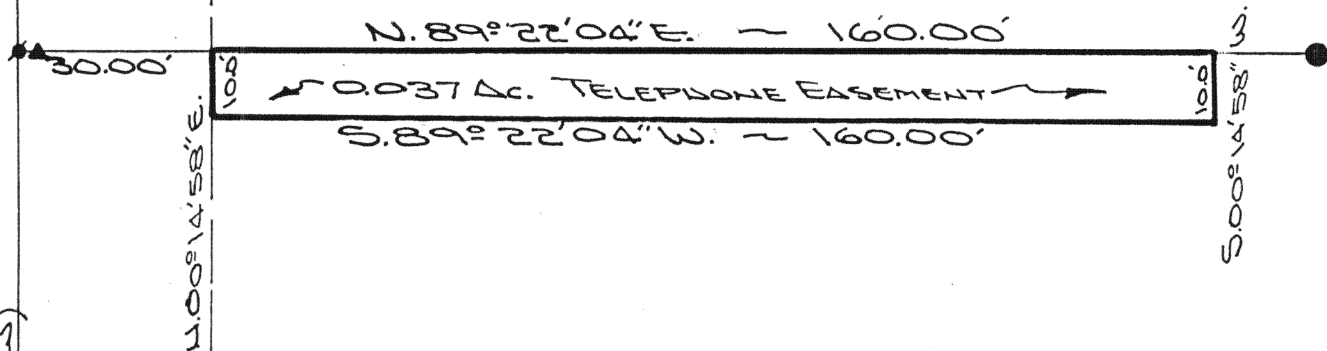 N. 89° 22' 04" E. ~ 160.00'
30.00'
10.0'
0.037 Ac. TELEPHONE EASEMENT
10.0'
S. 89° 22' 04" W. ~ 160.00'
N.00° 14' 58" E.
S.00° 14' 58"